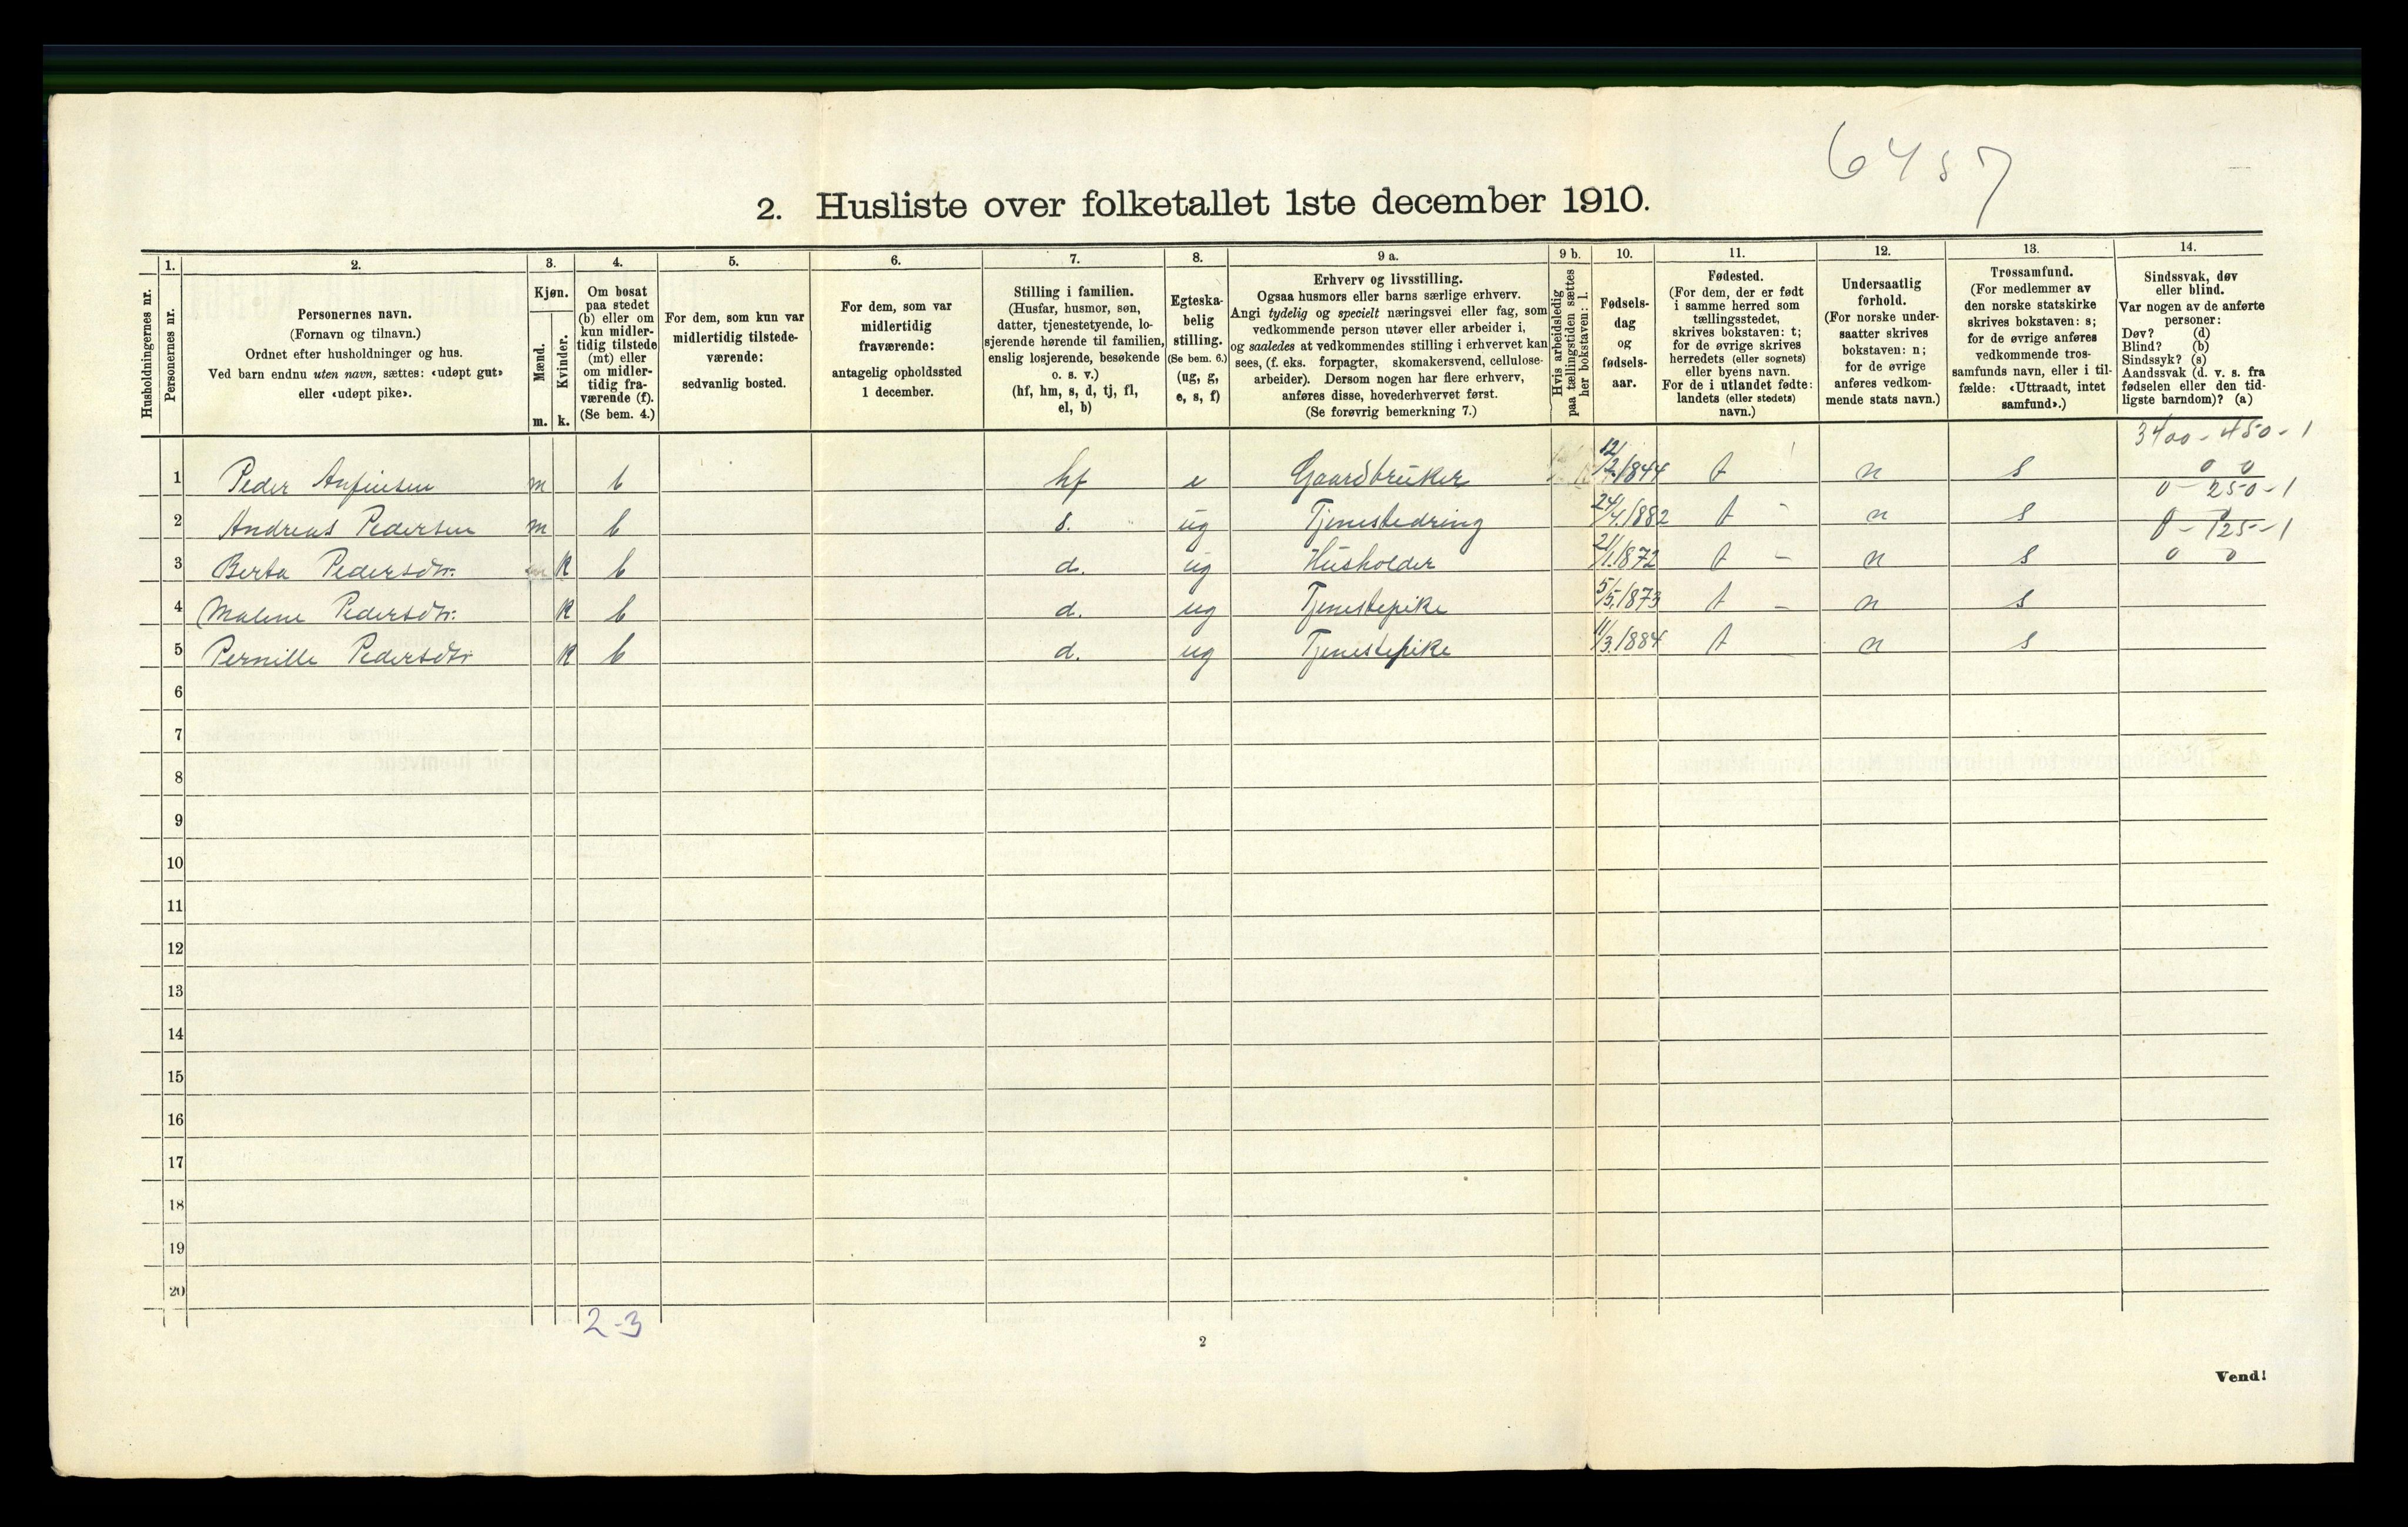 6457
2. Husliste over folketallet 1ste december 1910.
Husholdningernes nr.
1.
Personernes nr.
2.
Personernes navn.
(Fornavn og tilnavn.)
Ordnet efter husholdninger og hus.
Ved barn endnu uten navn, sættes: «udøpt gut»
eller «udøpt pike».
3.
Kjøn.
Mænd.
m.
Kvinder.
k.
4.
Om bosat
paa stedet
(b) eller om
kun midler-
tidig tilstede
(mt) eller
om midler-
tidig fra-
værende (f).
(Se bem. 4.)
5.
For dem, som kun var
midlertidig tilstede-
værende:
sedvanlig bosted.
6.
For dem, som var
midlertidig
fraværende:
antagelig opholdssted
1 december.
7.
Stilling i familien.
(Husfar, husmor, søn,
datter, tjenestetyende, lo-
sjerende hørende til familien,
enslig losjerende, besøkende
o. s. v.)
(hf, hm, s, d, tj, fl,
el, b)
8.
Egteska-
belig
stilling.
(Se bem. 6.)
(ug, g,
e, s, f)
9 a.
Erhverv og livsstilling.
Ogsaa husmors eller barns særlige erhverv.
Angi tydelig og specielt næringsvei eller fag, som
vedkommende person utøver eller arbeider i,
og saaledes at vedkommendes stilling i erhvervet kan
sees, (f. eks. forpagter, skomakersvend, cellulose-
arbeider). Dersom nogen har flere erhverv,
anføres disse, hovederhvervet først.
(Se forøvrig bemerkning 7.)
9 b.
Hvis arbeidsledig
paa tællingstiden sættes
her bokstaven: l.
10.
Fødsels-
dag
og
fødsels-
aar.
11.
Fødested.
(For dem, der er født
i samme herred som
tællingsstedet,
skrives bokstaven: t;
for de øvrige skrives
herredets (eller sognets)
eller byens navn.
For de i utlandet fødte:
landets (eller stedets)
navn.)
12.
Undersaatlig
forhold.
(For norske under-
saatter skrives
bokstaven: n;
for de øvrige
anføres vedkom-
mende stats navn.)
13.
Trossamfund.
(For medlemmer av
den norske statskirke
skrives bokstaven: s;
for de øvrige anføres
vedkommende tros-
samfunds navn, eller i til-
fælde: «Uttraadt, intet
samfund».)
14.
Sindssvak, døv
eller blind.
Var nogen av de anførte
personer:
Døv? (d)
Blind? (b)
Sindssyk? (s)
Aandssvak (d. v. s. fra
fødselen eller den tid-
ligste barndom)? (a)
3400-450-1
1 Peder Anfinsen m b hf e Gaardbruker 12/2.1844 t n s 0 0
0-250-1
2 Andreas Pedersen m b s. ug Tjenestedreng 24/4.1882 t - n s
0-125-1
3 Berta Pedersdtr. k b d. ug Husholder 21/1.1872 t - n s 0 0
4 Malene Pedersdtr. k b d. ug Tjenestepike 5/5.1873 t - n s
5 Pernille Pedersdtr k b d. ug Tjenestepike 11/3.1884 t - n s
6
7
8
9
10
11
12
13
14
15
16
17
18
19
20
2-3
2
Vend!